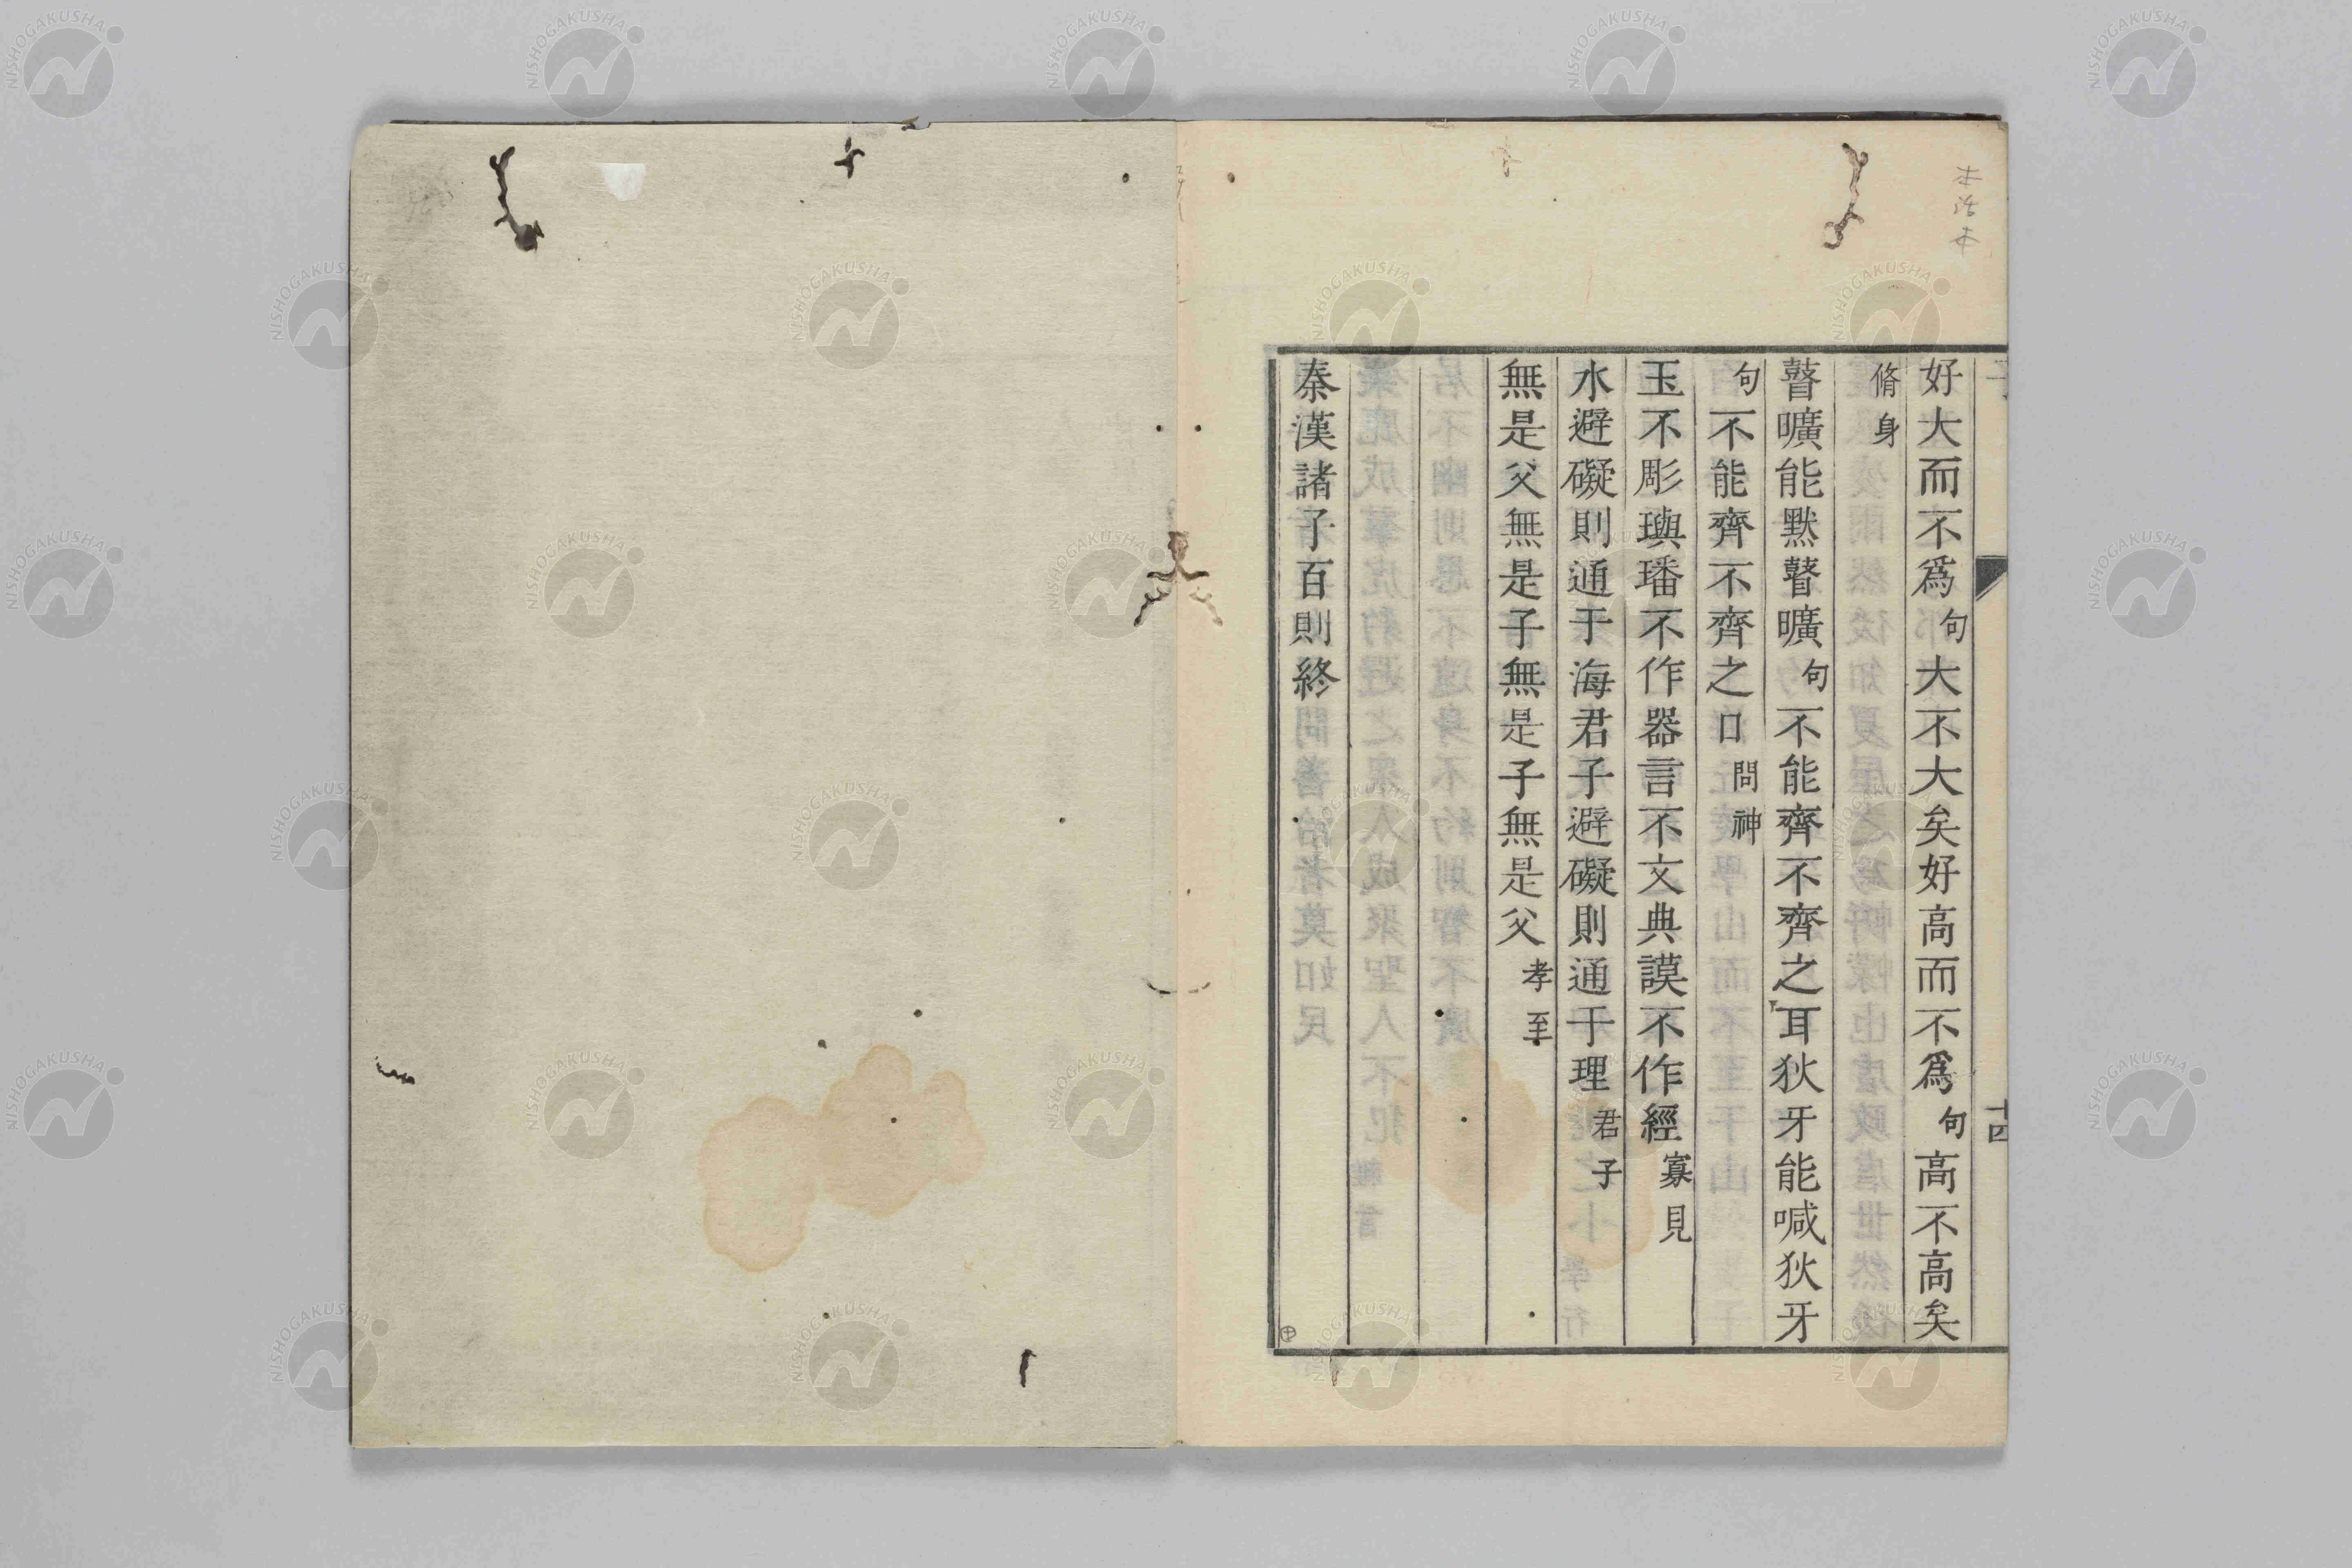 好大而不爲句大不大矣好高而不爲句高不高矣
脩身
瞽曠能默瞽曠句不能齊不齊之耳狄牙能喊狄牙
句不能齊不齊之口問神
玉不彫璵璠不作器言不文典謨不作經寡見
水避礙則通于海君子避礙則通于理君子
無是父無是子無是子無是父孝至
秦漢諸子百則終
十四
NISHOGAKUSHA